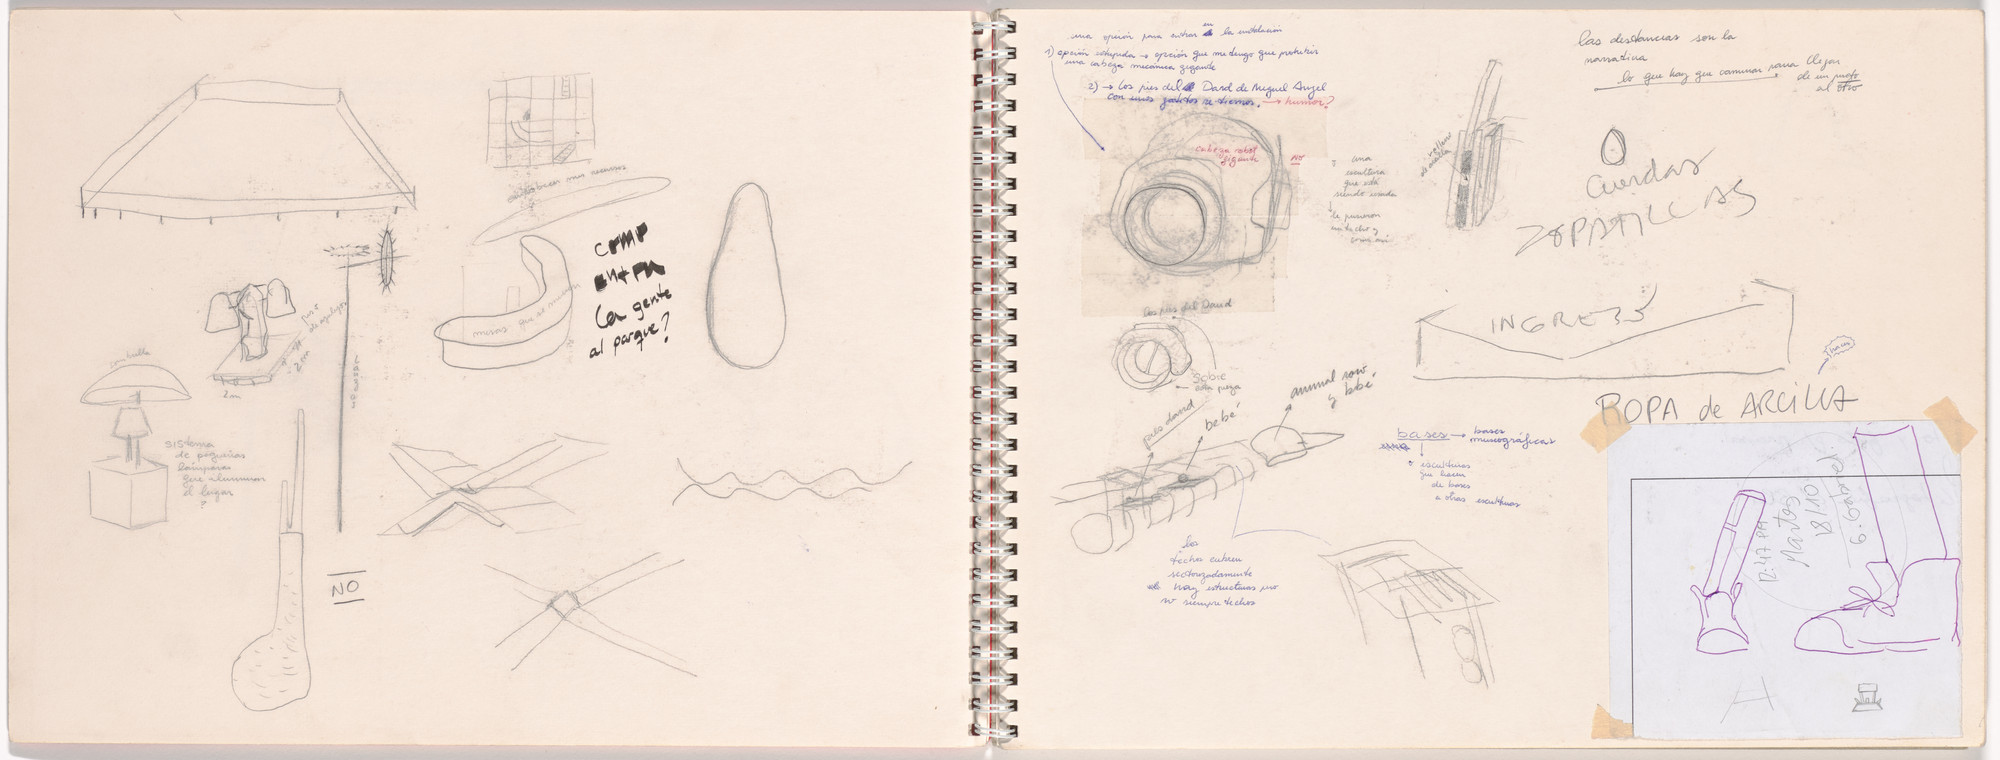 mesas que se mueven
como
entra
la gente
al parque?
2m
2m
sistema
de pequeñas
lámparas
que iluminan
el lugar
?
NO
una opción para entrar en la instalación
1) opción estupida → opción que me tengo que prohibir
una cabeza mecánica gigante
2) → los pies del David de Miguel Angel
con unos gatitos se tiernos. → humor?
cabeza robot
gigante
NO
una
escultura
que está
siendo usada
↓
le pusieron
un techo y
Dos pies del David
sobre
esta pieza
pies david
bebé
animal raro
y bebé
bases → bases
museográficas
esculturas
que hacen
de bases
a otras esculturas
los
techos cubren
sectorizadamente
hay estructuras pero
no siempre techos
las distancias son la
narrativa
lo que hay que caminar para llegar
de un punto
al otro
Cuerdas
ZAPATILLAS
INGRESO
ROPA de ARCILLA
12:47 PM
Martes
18/10
6: